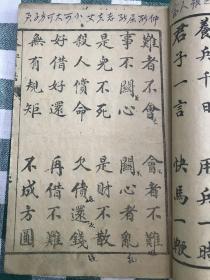 養兵千日 用兵一時
君子一言 快馬一鞭
難者不會 會者不難
事不關心 關心者亂
是児不死 是財不散
殺人償命 欠債還錢
好借好還 再借不難
無有規矩 不成方圓